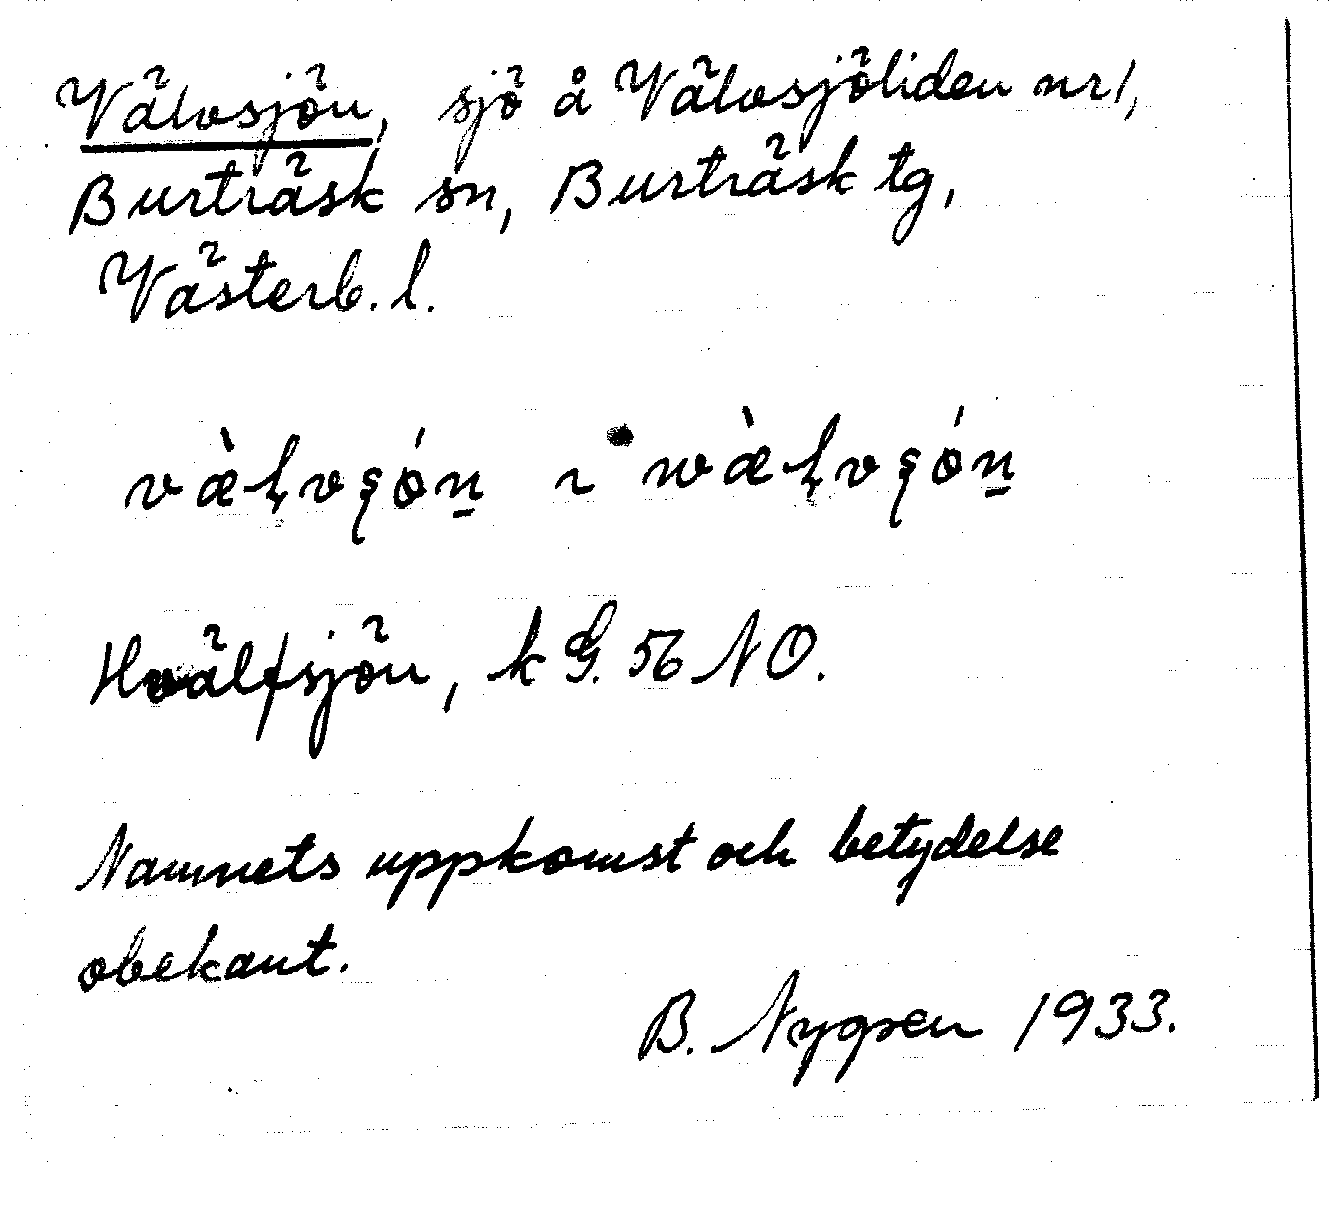 Välvsjön, sjö å Välvsjöliden nr 1,
Burträsk sn, Burträsk tg,
Västerb. l.
Hvälfsjön, k G. 56 NO.
Namnets uppkomst och betydelse
obekant.
B. Nygren 1933.